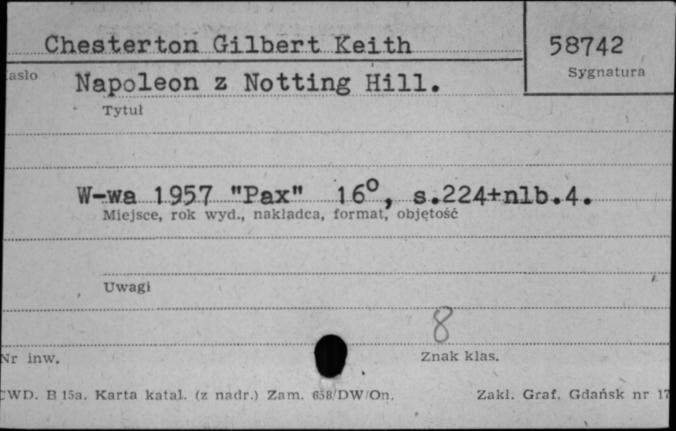 Chesterton Gilbert Keith
58742
asło
Sygnatura
Napoleon z Notting Hill.
Tytuł
W-wa 1957 "Pax" 16°, s.224+nlb.4.
Miejsce, rok wyd., nakładca, format, objętość
Uwagi
8
Nr inw.
Znak klas.
CWD. B 15a. Karta katal. (z nadr.) Zam. 658/DW/On.
Zakł. Graf. Gdańsk nr 17